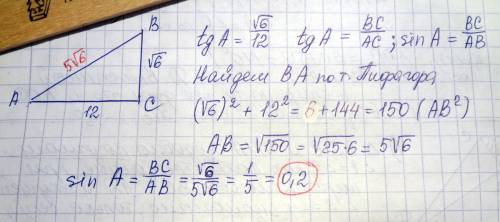 B
5√6
√6
A
12
C
tg A = √6/12 tg A = BC/AC ; sin A = BC/AB
Найдем ВА по т. Пифагора
(√6)² + 12² = 6 + 144 = 150 (AB²)
AB = √150 = √25·6 = 5√6
sin A = BC/AB = √6/5√6 = 1/5 = 0,2